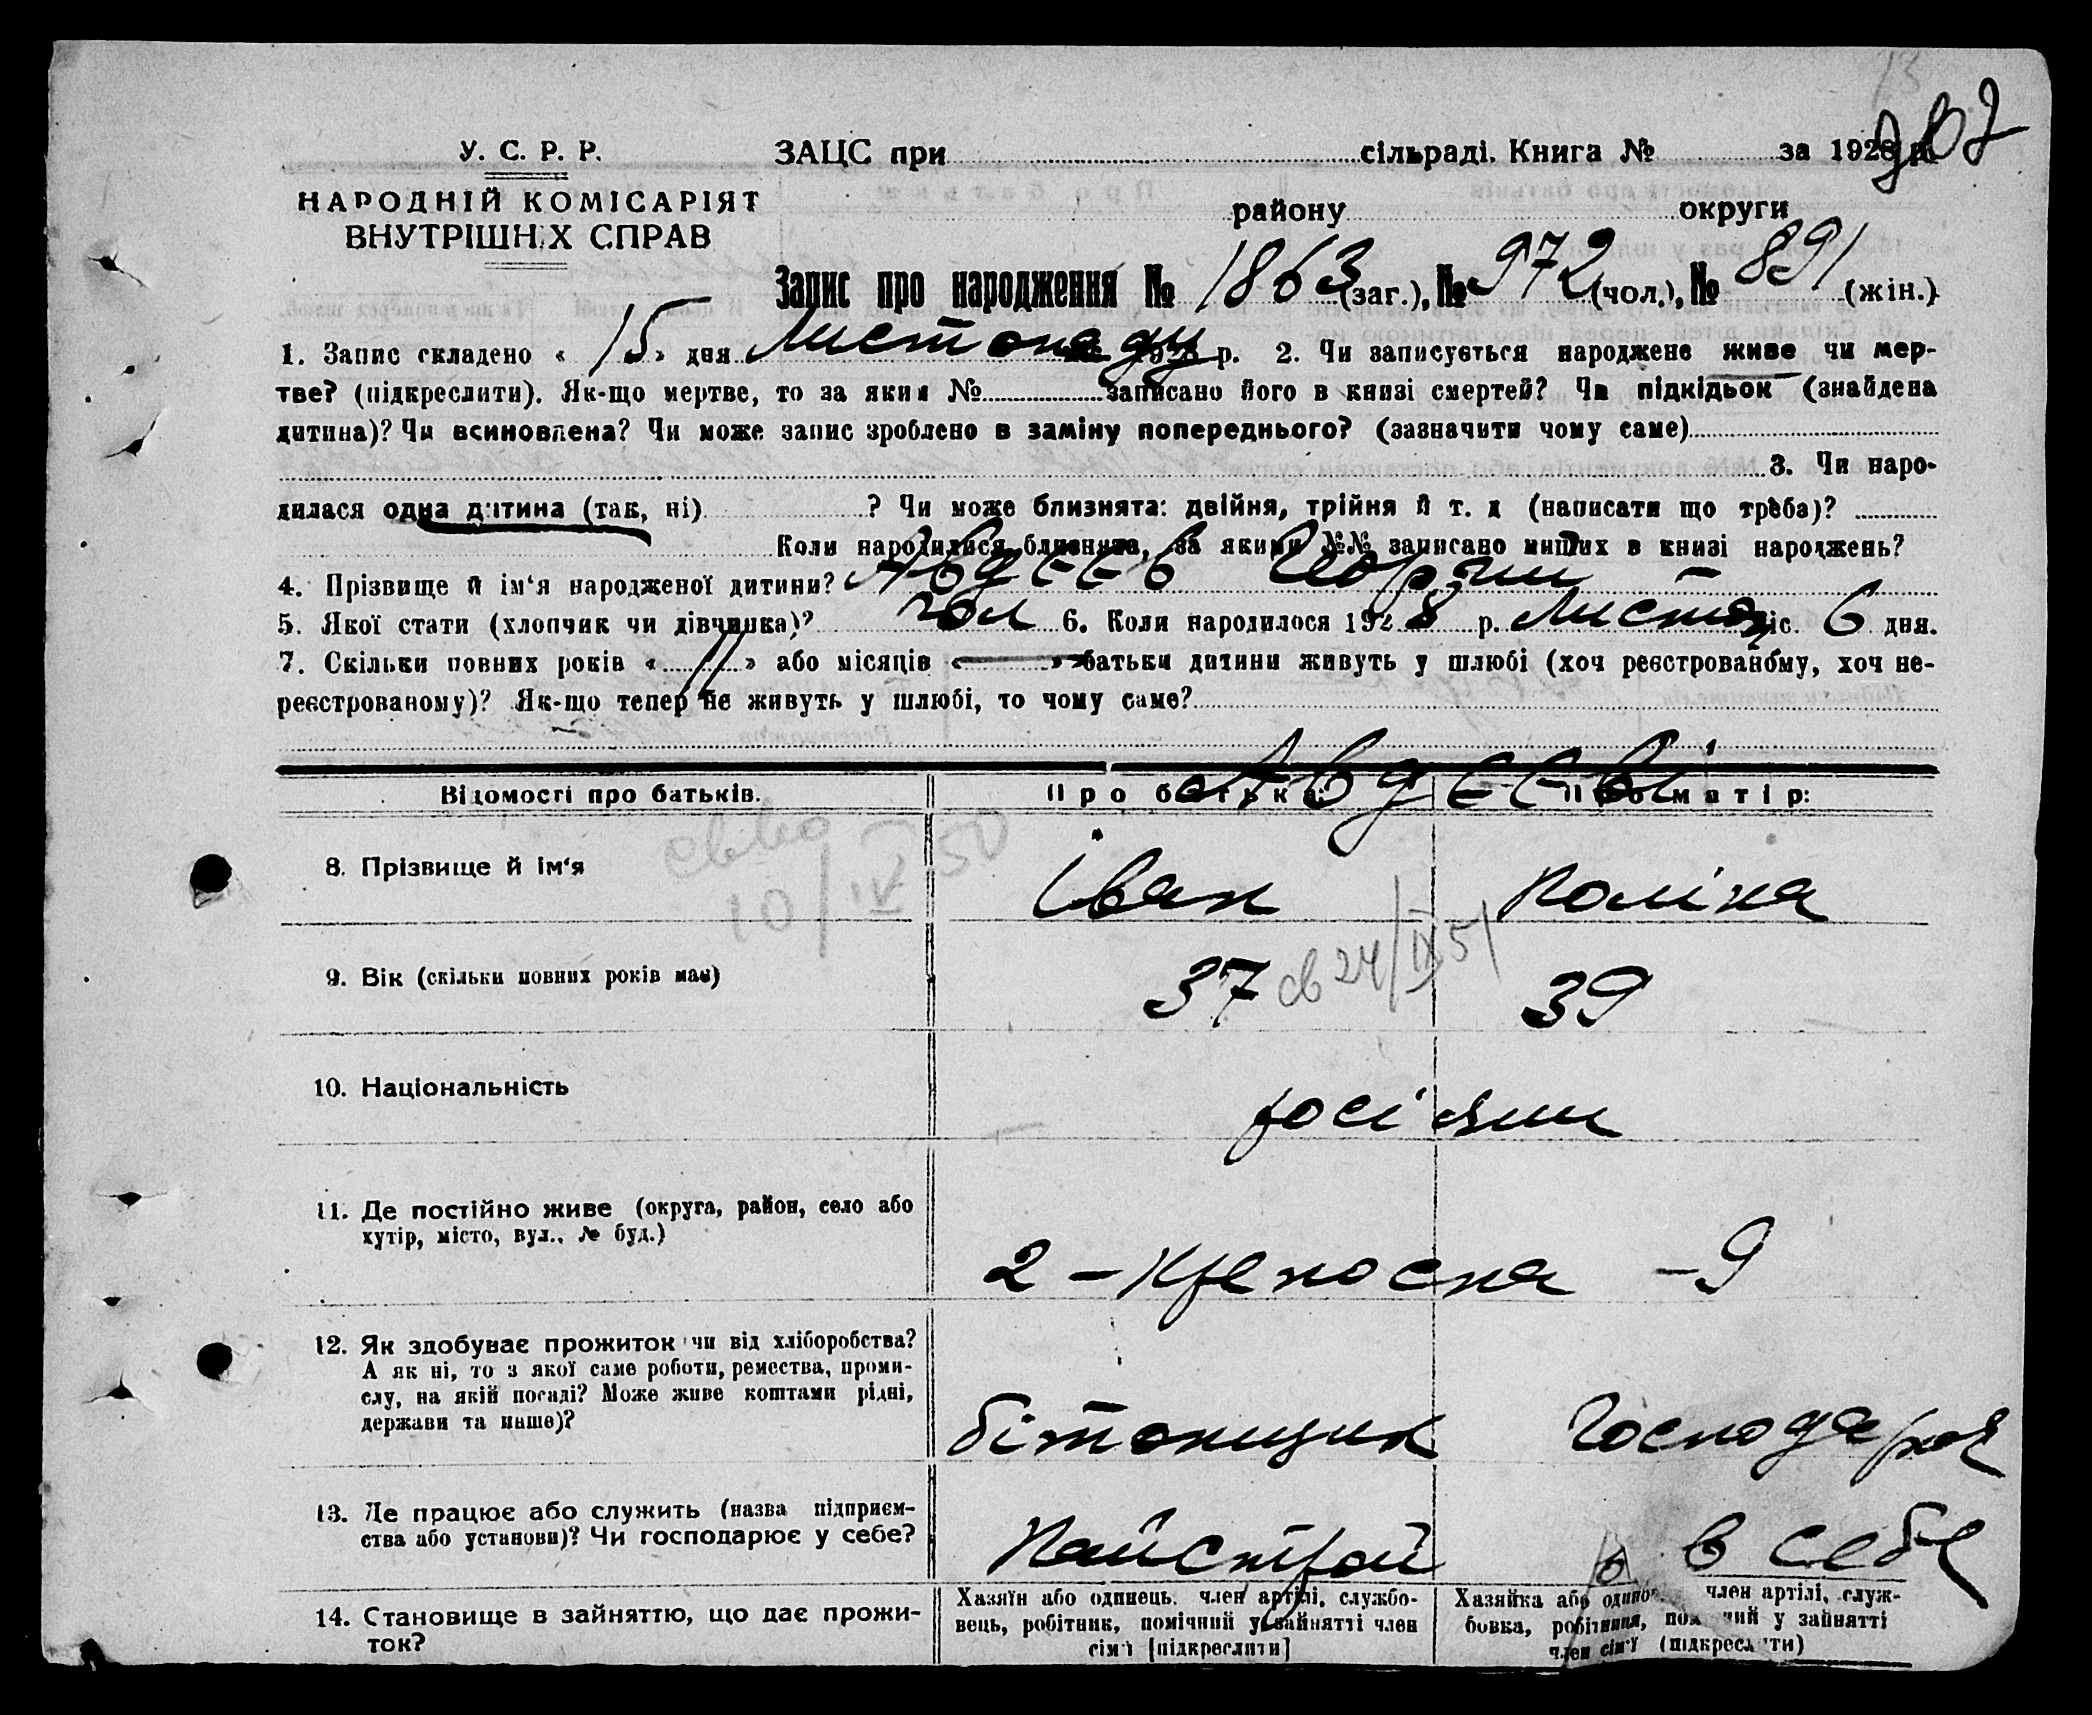 У. С. Р. Р.
НАРОДНІЙ КОМІСАРІЯТ
ВНУТРІШНІХ СПРАВ
ЗАЦС при сільраді. Книга № за 1928 р.
району округи
Запис про народження № 1863 (заг.), № 972 (чол.), № 891 (жін.)
1. Запис складено « 15 » дня Листопаду 1928 р. 2. Чи записується народжене живе чи мер-
тве? (підкреслити). Як-що мертве, то за яким № записано його в книзі смертей? Чи підкідьок (знайдена
дитина)? Чи всиновлена? Чи може запис зроблено в заміну попереднього? (зазначити чому саме)
3. Чи наро-
дилася одна дитина (так, ні) ? Чи може близнята: двійня, трійня й т. д (написати що треба)?
Коли народилися близнята, за якими №№ записано инших в книзі народжень?
4. Прізвище й ім‘я народженої дитини? Авдєєв Георгій
5. Якої стати (хлопчик чи дівчинка)? чол 6. Коли народилося 1928 р. Листоп міс. 6 дня.
7. Скільки повних років « 11 » або місяців « — » батьки дитини живуть у шлюбі (хоч реєстрованому, хоч не-
реєстрованому)? Як-що тепер не живуть у шлюбі, то чому саме?
Авдєєві
Відомості про батьків. Про батька: Про матір:
8. Прізвище й ім‘я Іван Поліна
10/IV 50
9. Вік (скільки повних років має) 37 св 24/IX 51 39
10. Національність росіяни
11. Де постійно живе (округа, район, село або
хутір, місто, вул., № буд.)
2 – Кременсна – 9
12. Як здобуває прожиток чи від хліборобства?
А як ні, то з якої саме роботи, ремества, проми-
слу, на якій посаді? Може живе коштами рідні,
держави та инше)?
бітонщик Господарює
13. Де працює або служить (назва підприєм-
ства або установи)? Чи господарює у себе?
Пайстрой в себе
14. Становище в зайняттю, що дає прожи-
ток?
Хазяїн або одинець, член артілі, службо-
вець, робітник, помічний у зайнятті член
сім‘ї [підкреслити]
Хазяйка або одинок. член артілі, служ-
бовка, робітниця, помічний у зайнятті
член сім‘ї (підкреслити)